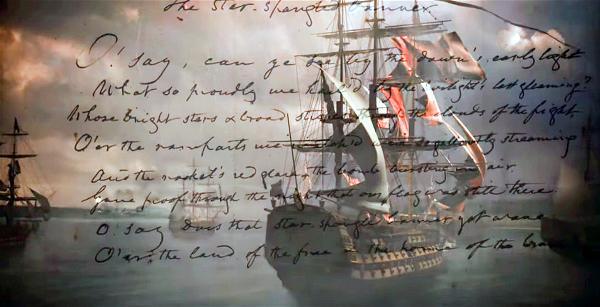 The Star-Spangled Banner
O! say, can ye see by the dawn's early light
What so proudly we hail'd by the twilight's last gleaming?
Whose bright stars & broad stripes through the clouds of the fight
O'er the ramparts we watch'd were so gallantly streaming
And the rocket's red glare the bomb bursting in air
Gave proof through the night that our flag was still there
O! say does that star-spangled banner yet wave
O'er the land of the free & the home of the brave